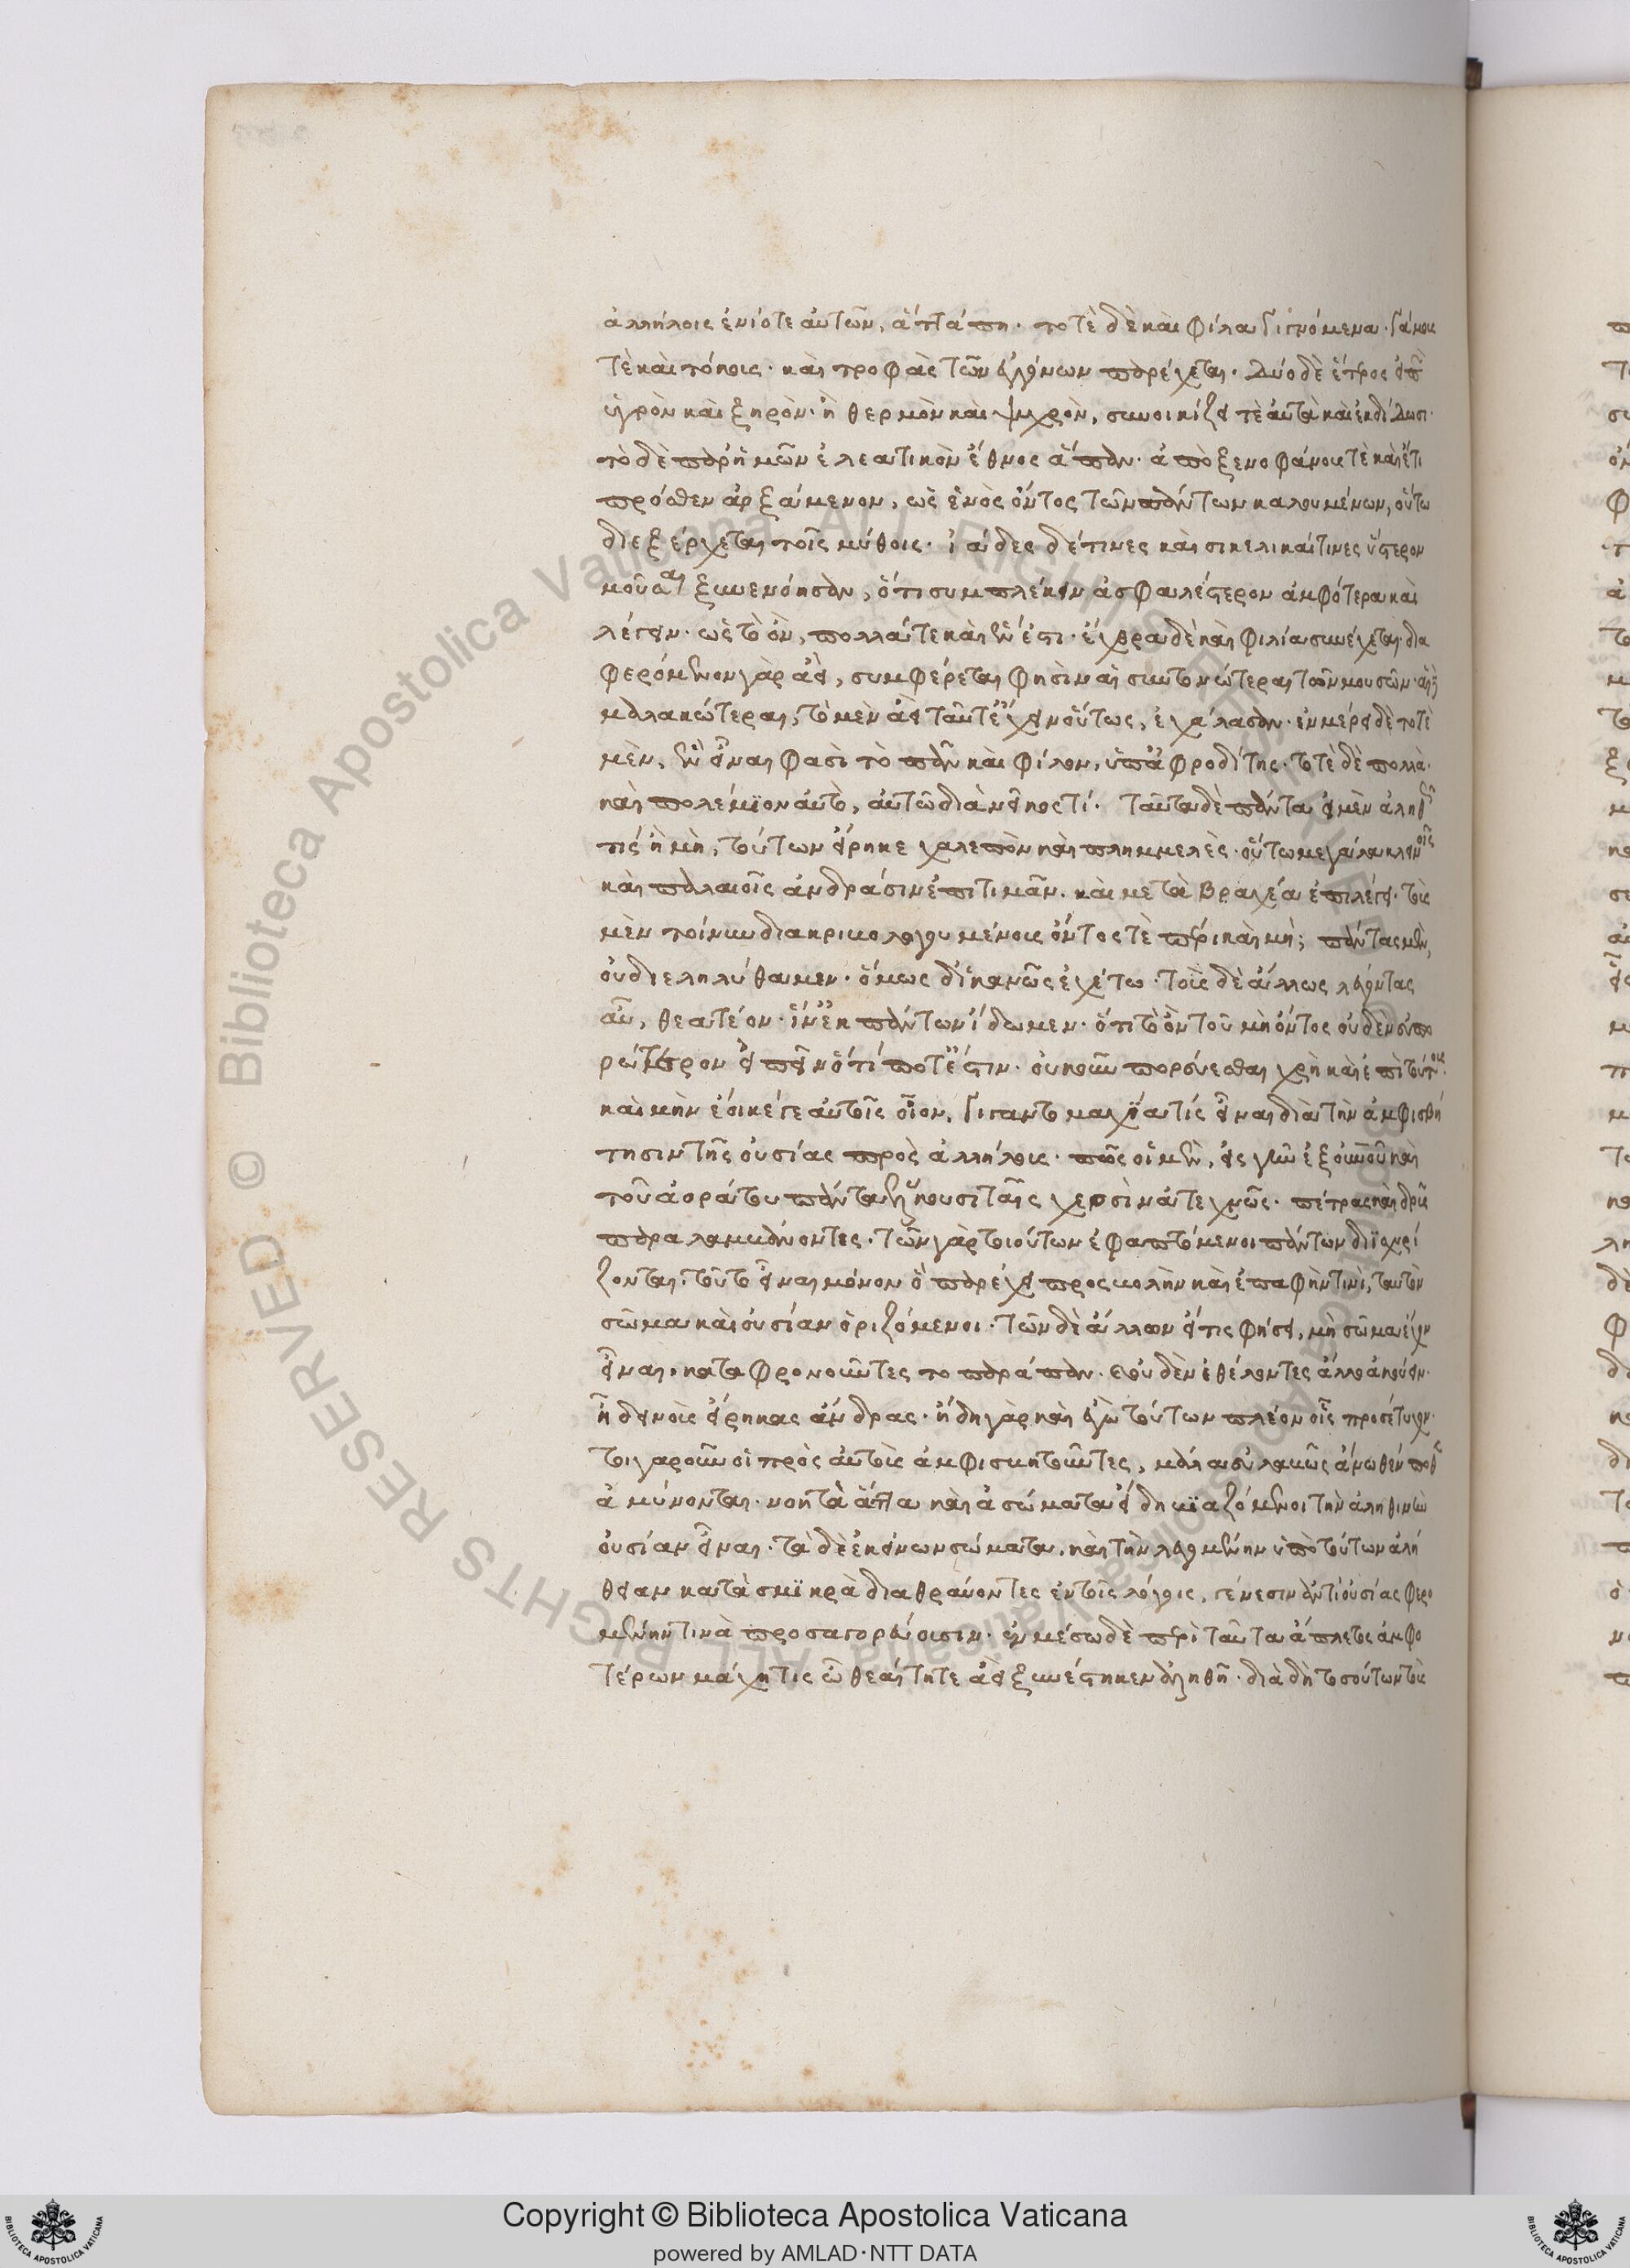 ἀλλήλοις ἐνίοτε αὐτῶν, ἄττα πη· τοτὲ δὲ καὶ φίλα γιγνόμενα· γάμους
τὲ καὶ τόκους· καὶ τροφὰς τῶν ἐκγόνων παρέχεται. δύο δὲ ἕτερος εἰπὼν
ὑγρὸν καὶ ξηρὸν· ἢ θερμὸν καὶ ψυχρὸν, συνοικίζει τὲ αὐτὰ καὶ ἐκδίδωσι·
τὸ δὲ παρ' ἡμῶν ἐλεατικὸν ἔθνος ἅπαν· ἀπὸ ξενοφάνους τὲ καὶ ἔτι
πρόσθεν ἀρξάμενον, ὡς ἑνὸς ὄντος τῶν πάντων καλουμένων, οὕτω
διεξέρχεται τοῖς μύθοις· ἰάδες δέ τινες καὶ σικελικαί τινες ὕστερον
μοῦσαι ξυνενόησαν, ὅτι συμπλέκειν ἀσφαλέστερον ἀμφότερα καὶ
λέγειν· ὡς τὸ ὂν, πολλά τε καὶ ἕν ἐστι· ἔχθρα δὲ καὶ φιλία συνέχεται· δια
φερόμενον γὰρ ἀεὶ, συμφέρεται φησὶν αἱ συντονώτεραι τῶν μουσῶν· αἱ δὲ
μαλακώτεραι, τὸ μὲν ἀεὶ ταῦτ' ἔχειν οὕτως, ἐχάλασαν· ἐν μέρει δὲ τοτὲ
μὲν, ἓν εἶναι φασὶ τὸ πᾶν καὶ φίλον, ὑπ' ἀφροδίτης· τοτὲ δὲ πολλὰ·
καὶ πολέμϊον αὐτὸ, αὑτῶ διὰ νεῖκος τί· ταῦτα δὲ πάντα εἰ μὲν ἀληθῶς
τίς ἢ μὴ, τούτων εἴρηκε χαλεπὸν καὶ πλημμελὲς· οὕτω μεγάλα κλεινοῖς
καὶ παλαιοῖς ἀνδράσιν ἐπιτιμᾶν. καὶ μετὰ βραχέα ἐπιλέγει· τοὺς
μὲν τοίνυν διακριβολογουμένους ὄντος τὲ πέρι καὶ μή; πάντας μὲν,
οὐ διεληλύθαμεν· ὅμως δ' ἱκανῶς ἐχέτω· τοὺς δὲ ἄλλως λέγοντας
αὖ, θεατέον· ἵν' ἐκ πάντων ἴδωμεν· ὅτι τὸ ὂν τοῦ μὴ ὄντος οὐδὲν εὐπο
ρώτερον εἰπεῖν ὅτί ποτ' ἔστιν· οὐκοῦν πορεύεσθαι χρὴ καὶ ἐπὶ τούτους·
καὶ μὴν ἔοικέ γε αὐτοῖς οἷον, γιγαντομαχΐα τίς εἶναι διὰ τὴν ἀμφισβή
τησιν τῆς οὐσίας πρὸς ἀλλήλους· πῶς οἱ μὲν, εἰς γῆν ἐξ οὐρανοῦ καὶ
τοῦ ἀοράτου πάντα ἕλκουσι ταῖς χερσὶν ἀτεχνῶς· πέτρας καὶ δρῦς
παραλαμβάνοντες· τῶν γὰρ τοιούτων ἐφαπτόμενοι πάντων διϊσχυρί
ζονται, τοῦτο εἶναι μόνον ὃ παρέχει προσβολὴν καὶ ἐπαφὴν τινὶ, ταυτὸν
σῶμα καὶ οὐσίαν ὁριζόμενοι· τῶν δὲ ἄλλων εἴ τις φήσει, μὴ σῶμα ἔχον
εἶναι, καταφρονοῦντες τὸ παράπαν· οὐδὲν ἐθέλοντες ἄλλο ἀκούειν·
ἦ δεινοὺς εἴρηκας ἄνδρας· ἤδη γὰρ καὶ ἐγὼ τούτων πλέον οἷς προσέτυχον·
τοιγαροῦν οἱ πρὸς αὐτοὺς ἀμφισβητοῦντες, μάλα εὐλαβῶς ἄνωθέν ποθεν
ἀμύνονται· νοητὰ ἄττα καὶ ἀσώματα εἴδη βϊαζόμενοι τὴν ἀληθινὴν
οὐσίαν εἶναι· τὰ δὲ ἐκείνων σώματα, καὶ τὴν λεγομένην ὑπὸ τούτων ἀλή
θειαν κατὰ σμϊκρὰ διαθραύοντες ἐν τοῖς λόγοις, γένεσιν ἀντὶ οὐσίας φερο
μένην τινὰ προσαγορεύουσιν· ἐν μέσω δὲ περὶ ταῦτα ἄπλετος ἀμφο
τέρων μάχη τις ὦ θεαίτητε ἀεὶ ξυνέστηκεν ἀληθῆ· διὰ δὴ τοσούτων τοὺς
Copyright © Biblioteca Apostolica Vaticana
powered by AMLAD·NTT DATA